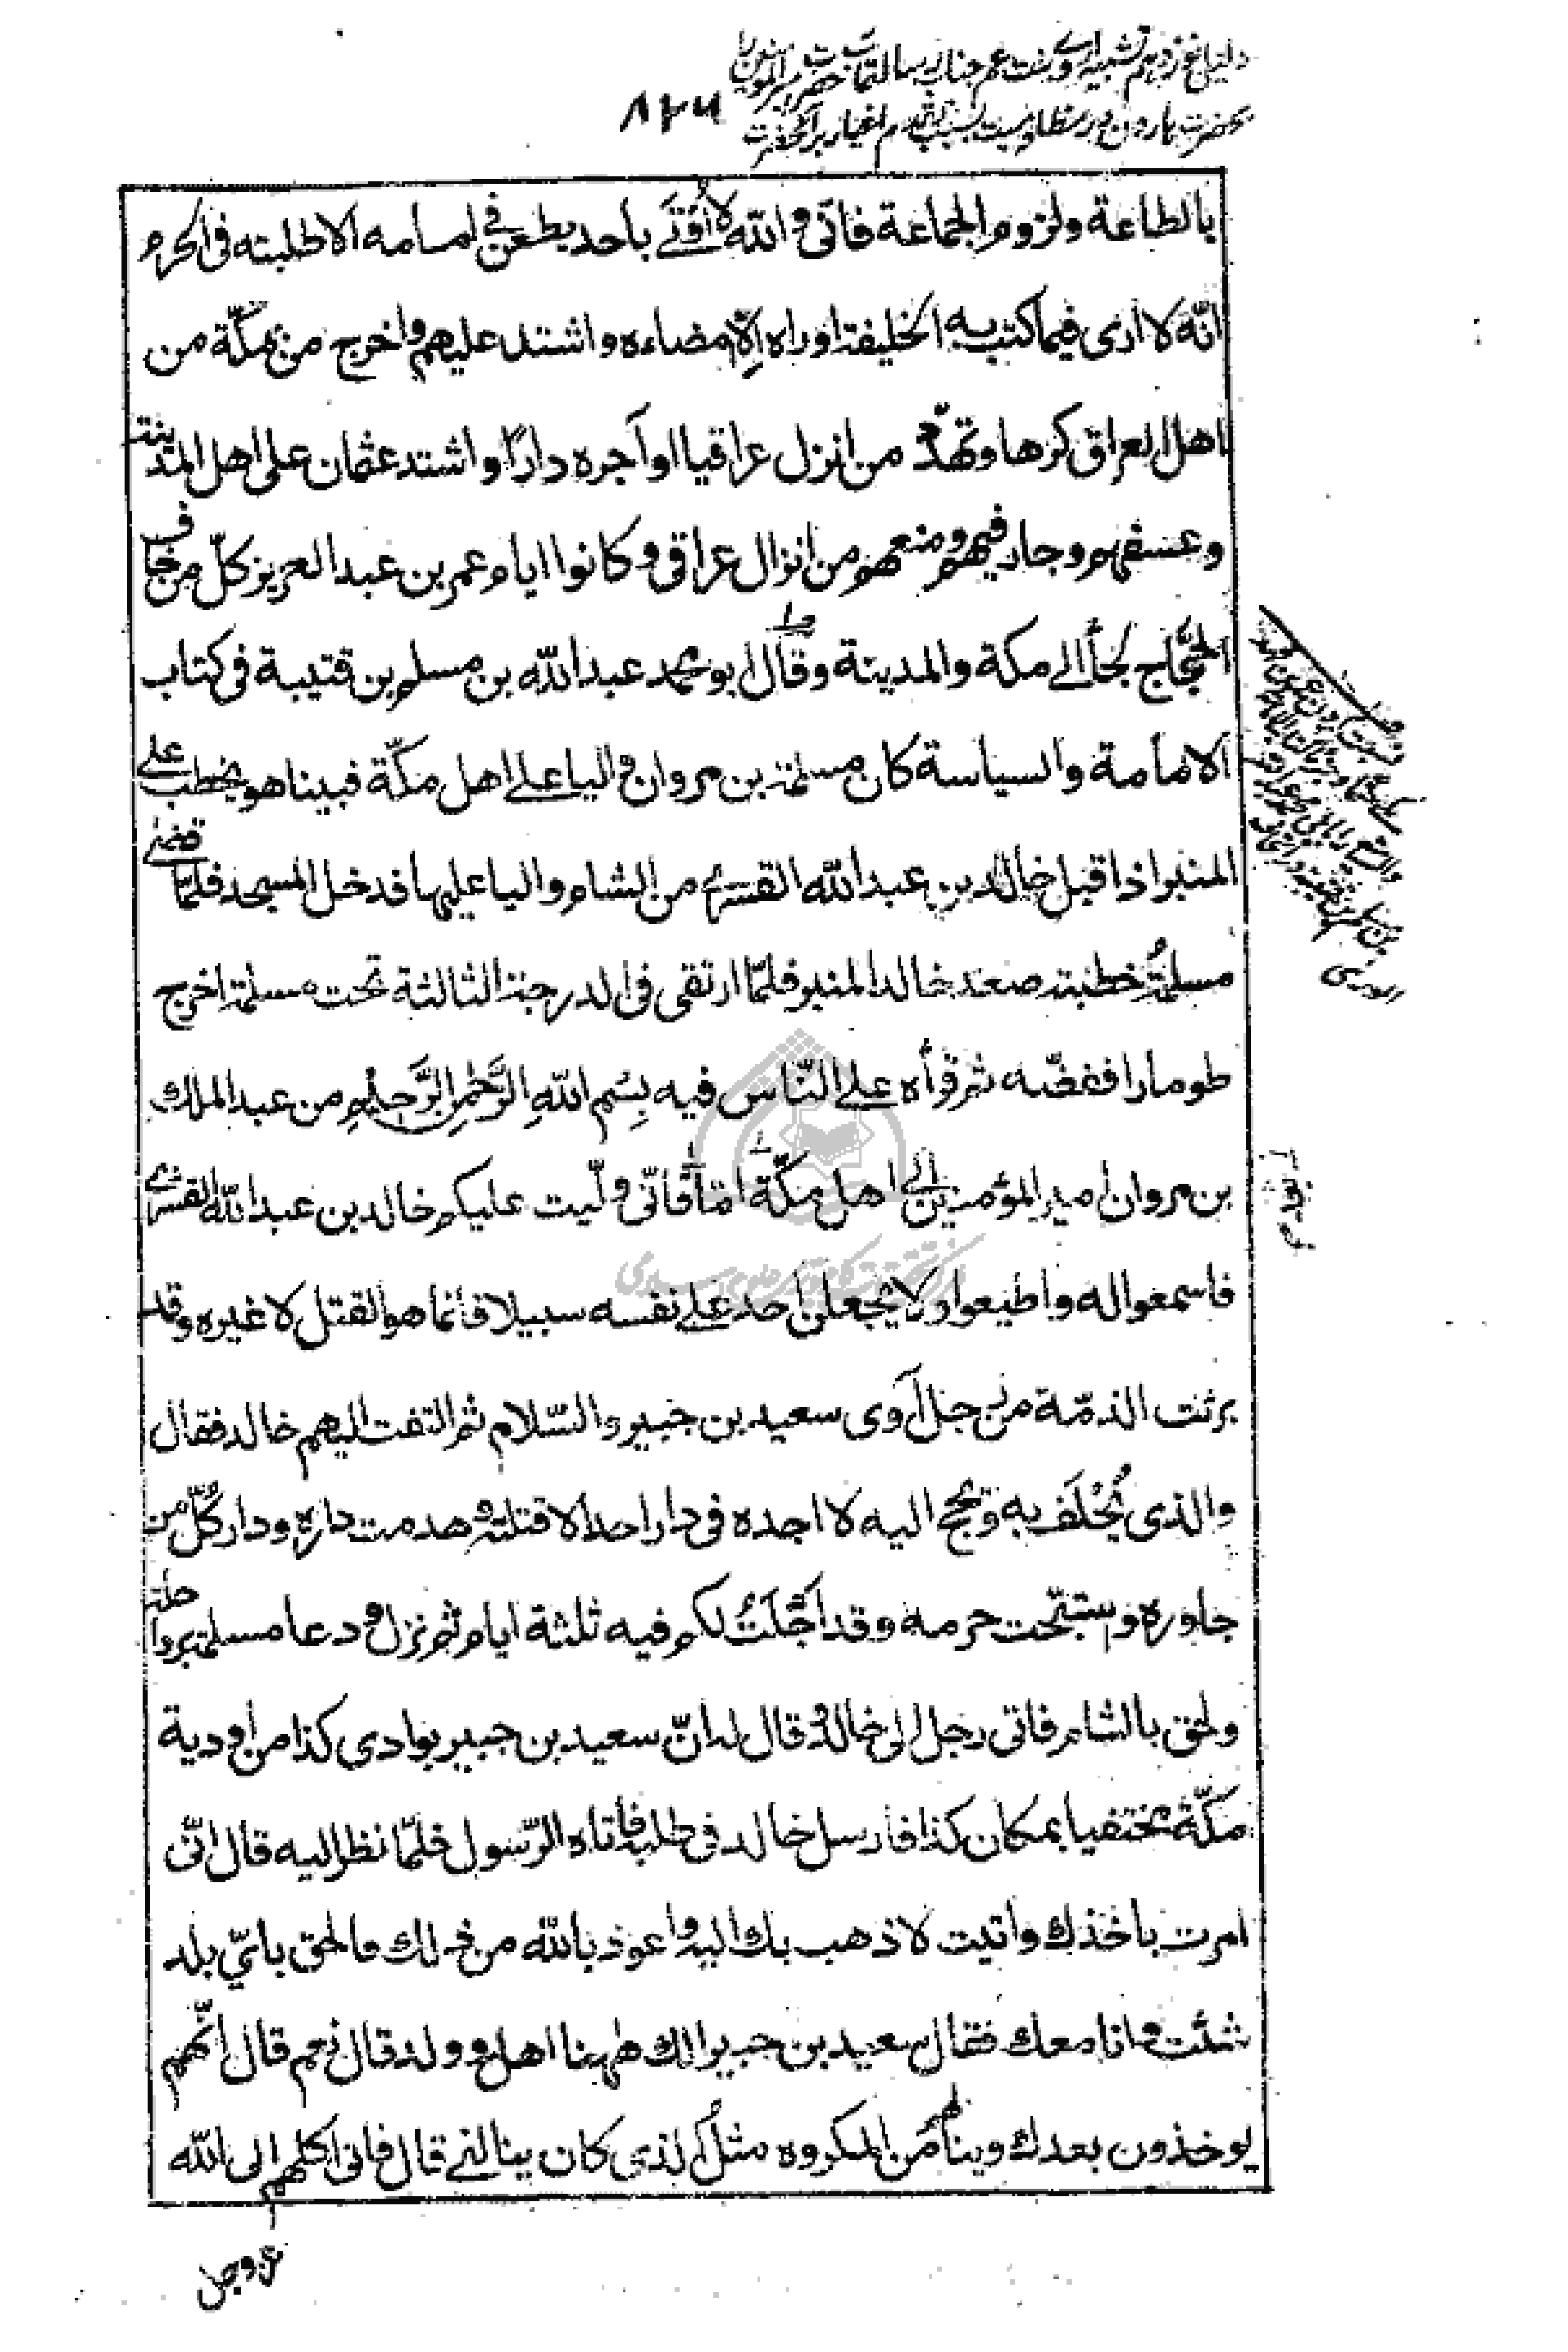 دلیل نوزدهم تشبیه
بحضرت هارون در مظلومیت بسبب تقدم اغیار بر آنحضرت
۸۲۶
بالطاعة ولزوم الجماعة فانی والله لا أوتے باحد يطعن فی امامه الا صلبته فی الحرم
انّه لا ارى فيما كتب به الخليفة او راه الّا امضاءه واشتد عليهم واخرج من بمكّة من
اهل العراق كرها وتهدّد من انزل عراقيا او آجره دارًا واشتد عثمان على اهل المدينة
وعسفهم وجار فيهم ومنعهم من انزال عراقى وكانوا ايام عمر بن عبد العزيز كلّ من خاف
الحجّاج لجأ الى مكة والمدينة وقال ابو محمد عبد الله بن مسلم بن قتيبة فى كتاب
الامامة والسياسة كان مسلمة بن مروان واليا علے اهل مكّة فبينا هو يخطب علے
المنبر اذ اقبل خالد بن عبد الله القسرى من الشام واليا عليها فدخل المسجد فلمّا قضے
مسلمةُ خطبته صعد خالد المنبر فلمّا ارتقى فى الدرجة الثالثة تحت مسلمة اخرج
طومارا ففضّه ثم قرأه علے النّاس فيه بِسْمِ اللهِ الرَّحْمٰنِ الرَّحِيْمِ من عبد الملك
بن مروان امير المؤمنين الى اهل مكّة امّا فانّى ولّيت عليكم خالد بن عبد الله القسرى
فاسمعوا له واطيعوا ولا يجعلن احد علے نفسه سبيلا فانما هو القتل لا غيره وقد
برئت الذمّة من رجل آوى سعيد بن جبير والسّلام ثم التفت اليهم خالد فقال
والذى يُحْلَف به ويحج اليه لا اجده فى دار احد الا قتلته وهدمت داره ودار كُلّ من
جاوره واستبحت حرمه وقد اجّلتُ لكم فيه ثلثة ايام ثم نزل ودعا مسلمة برواحله
ولحق بالشام فاتى رجل الى خالد وقال له انّ سعيد بن جبير بوادى كذا من اودية
مكّة مختفيا بمكان كذا فارسل خالد فى طلبه فاتاه الرّسول فلمّا نظر اليه قال انّى
امرت باخذك واتيت لاذهب بك اليه واعوذ بالله من ذلك فالحق بايّ بلد
شئت وانا معك فقال سعيد بن جبير الك ههنا اهل وولد قال نعم قال انّهم
يوخذون بعدك وينالهم من المكروه مثل الذى كان ينالنے قال فانى اكلهم الى الله
عز وجل